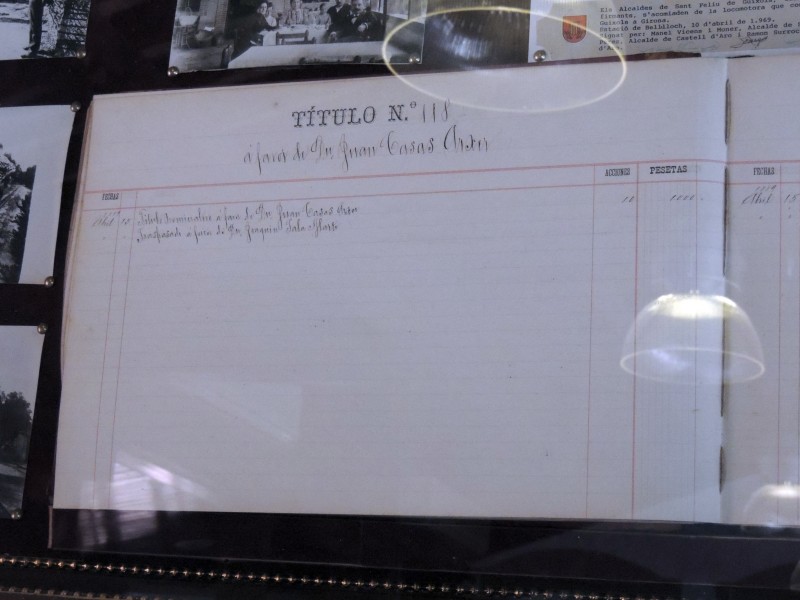 Els Alcaldes de Sant Feliu de Guíxols,
firmants, d'acomiadan de la locomotora que con
Guíxols a Girona.
Estació de Belllloch, 10 d'abril de 1.969,
Manel Vicens i Moner, Alcalde de
Alcalde de Castell d'Aro i Ramon
TÍTULO N.º 118
á favor de Dn. Juan Casas Arxer
FECHAS
ACCIONES
PESETAS
FECHAS
Abril 10 Título nominativo á favor de Dn. Juan Casas Arxer
Traspasado á favor de Dn. Joaquin Sala
10 1000
Abril 15